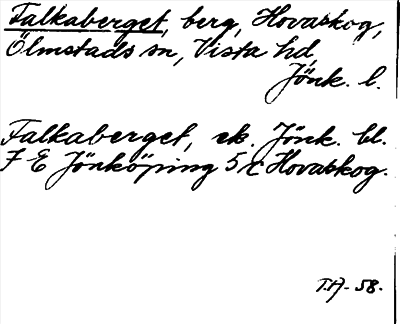 Falkaberget, berg, Hovaskog,
Ölmstads sn, Vista hd,
Jönk. l.
Falkaberget, ek. Jönk. bl.
7 E Jönköping 5 c Hovaskog.
T.H- 58.